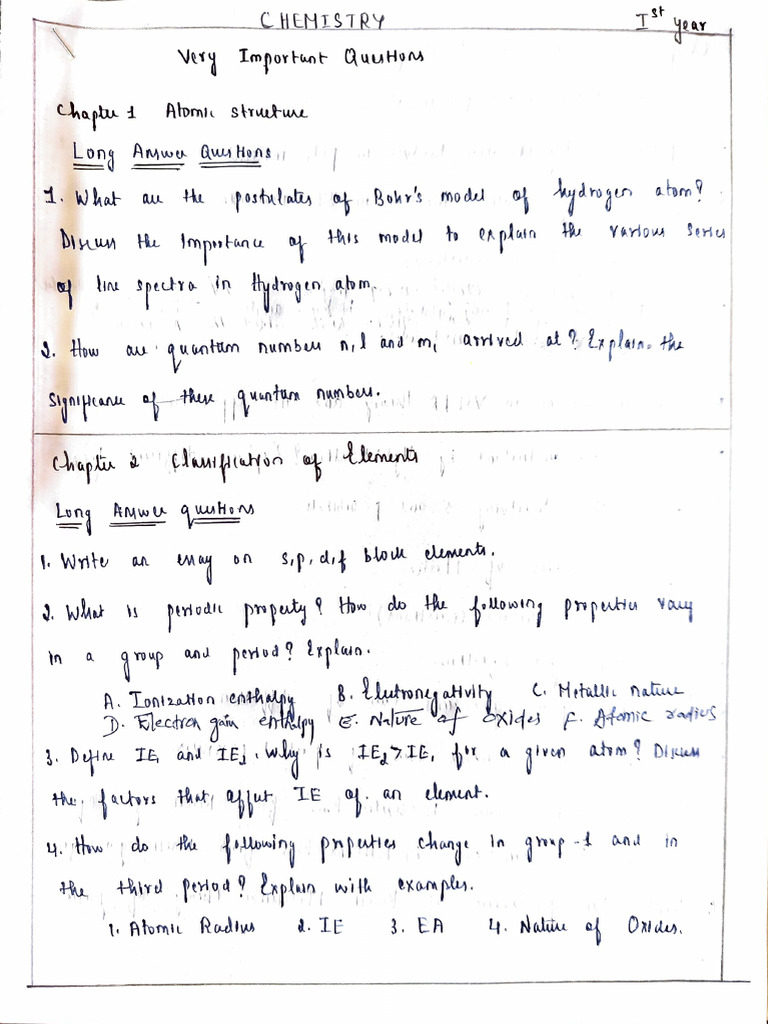 CHEMISTRY
Ist year
Very Important Questions
Chapter 1 Atomic structure
Long Answer Questions
1. What are the postulates of Bohr's model of hydrogen atom?
Discuss the Importance of this model to explain the various series
of line spectra in Hydrogen atom.
2. How are quantum numbers n, l and m, arrived at? Explain the
significance of these quantum numbers.
Chapter 2 Classification of Elements
Long Answer questions
1. Write an essay on s, p, d, f block elements.
2. What is periodic property? How do the following properties vary
in a group and period? Explain.
A. Ionization enthalpy B. Electronegativity C. Metallic nature
D. Electron gain enthalpy E. Nature of Oxides F. Atomic radius
3. Define IE1 and IE2. Why is IE2 > IE1 for a given atom? Discuss
the factors that affect IE of an element.
4. How do the following properties change in group -1 and in
the third period? Explain with examples.
1. Atomic Radius 2. IE 3. EA 4. Nature of Oxides.